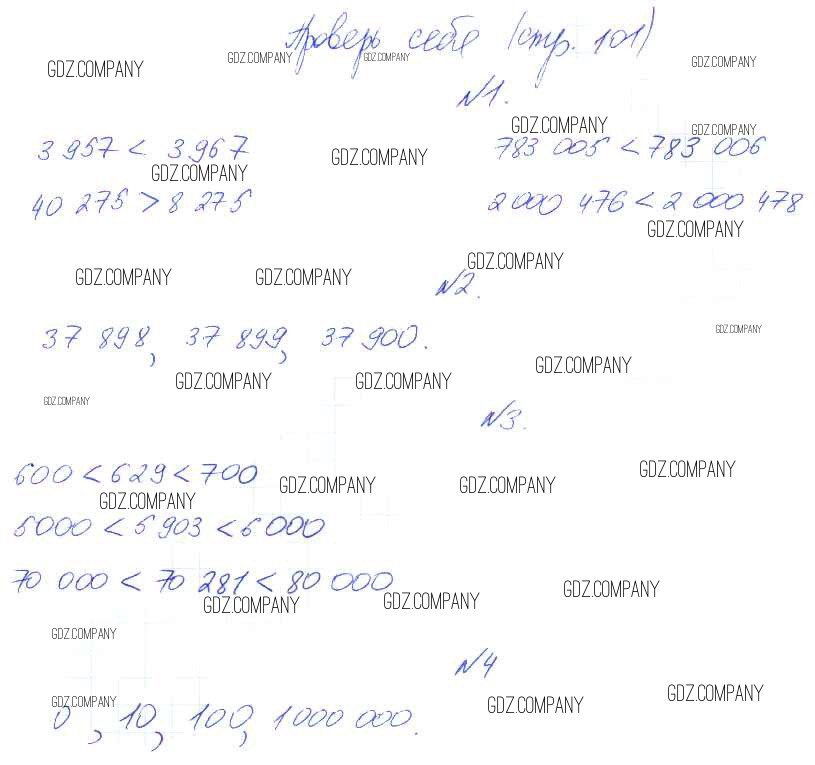 Проверь себе (стр. 101)
GDZ.COMPANY GDZ.COMPANY GDZ.COMPANY GDZ.COMPANY
№1.
GDZ.COMPANY GDZ.COMPANY
3 957 < 3 967 GDZ.COMPANY 783 005 < 783 006
GDZ.COMPANY
40 275 > 8 275 2 000 476 < 2 000 478
GDZ.COMPANY
GDZ.COMPANY GDZ.COMPANY GDZ.COMPANY
№2.
37 898, 37 899, 37 900. GDZ.COMPANY
GDZ.COMPANY GDZ.COMPANY GDZ.COMPANY
GDZ.COMPANY
№3.
600 < 629 < 700 GDZ.COMPANY GDZ.COMPANY GDZ.COMPANY
GDZ.COMPANY
5000 < 5 903 < 6 000
70 000 < 70 281 < 80 000 GDZ.COMPANY
GDZ.COMPANY GDZ.COMPANY
GDZ.COMPANY
№4
GDZ.COMPANY GDZ.COMPANY GDZ.COMPANY
0, 10, 100, 1000 000.